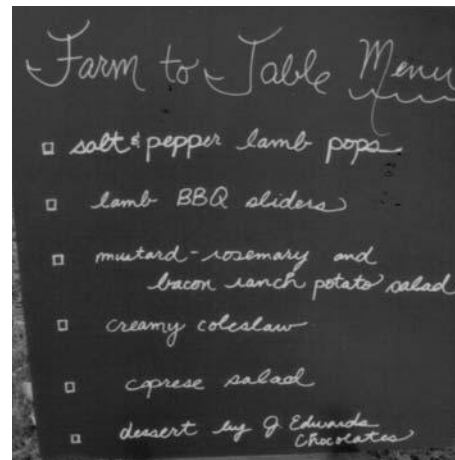 Farm to Table Menu
salt & pepper lamb pops
lamb BBQ sliders
mustard-rosemary and
bacon ranch potato salad
creamy coleslaw
caprese salad
dessert by J Edwards
Chocolates